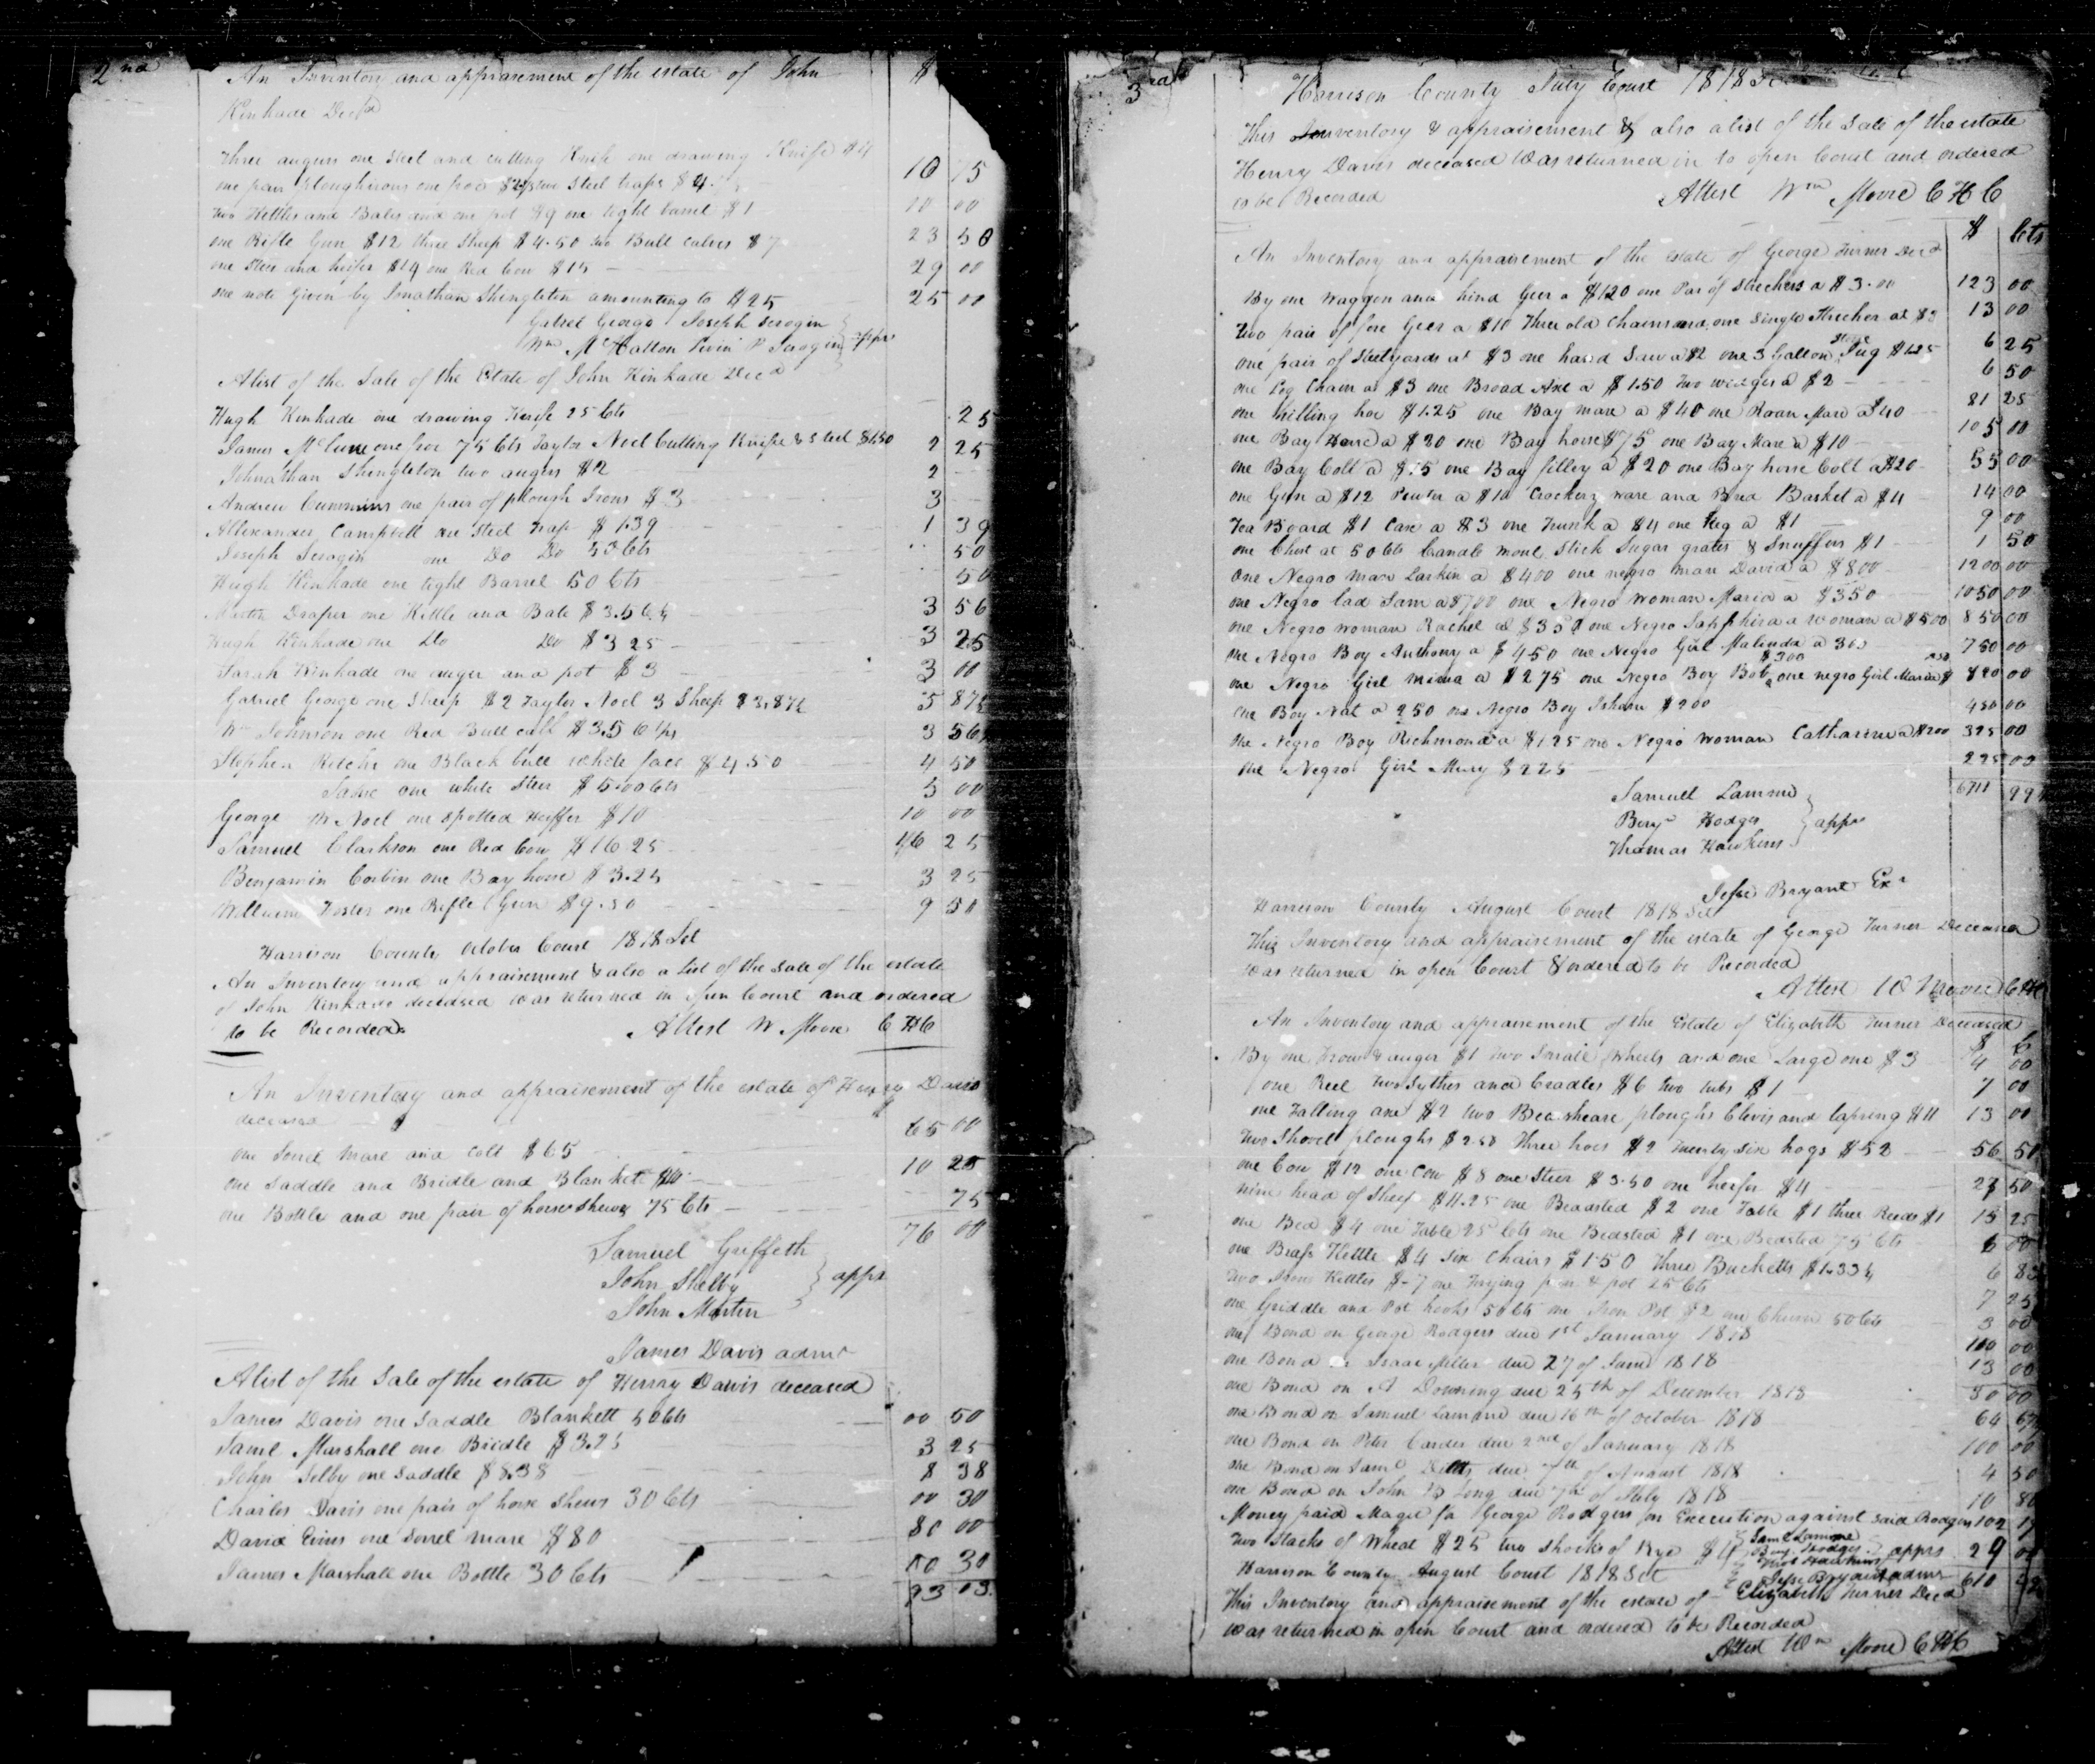 2nd
An Inventory and appraisement of the estate of John $
Kinkade Decd
Three augurs one steel and cutting Knife one drawing Knife $4
one pair ploughirons one two steel traps $4 10 75
two Kettles and Bales and one pot $9 one tight barrel $1 10 00
one Rifle Gun $12 three sheep $4.50 two Bull calves $7 23 50
one steer and heifer $14 one Red Cow $15 29 00
one note given by Jonathan Shingleton amounting to $25 25 00
Gabriel George Joseph Scrogin
Wm McHatton Levin P Scrogin apprs
A list of the Sale of the Estate of John Kinkade Decd
Hugh Kinkade one drawing Knife 25 Cts 25
James McCune one hoe 75 Cts Taylor Noel Cutting Knife & steel $1.50 2 25
Johnathan Shingleton two augers $2 2
Andrew Cummins one pair of plough Irons $3 3
Allexander Campbell one steel trap $1.39 1 39
Joseph Scrogin one Do Do 50 Cts 50
Hugh Kinkade one tight Barrel 50 Cts 50
Martin Draper one Kettle and Bale $3.56¼ 3 56
Hugh Kinkade one Do Do $3 25 3 25
Sarah Kinkade one auger and pot $3 3 00
Gabriel George one Sheep $2 Taylor Noel 3 Sheep $3.87½ 5 87½
Wm Johnson one Red Bull calf $3.56¼ 3 56¼
Stephen Ritchie one Black bull white face $4.50 4 50
Same one white steer $5.00 Cts 5 00
George W Noel one spotted Heiffer $10 10 00
Samuel Clarkson one Red Cow $16 25 16 25
Benjamin Corbin one Bay horse $3.25 3 25
William Foster one Rifle Gun $9.50 9 50
Harrison County October Court 1818 Sct
An Inventory and appraisement & also a list of the sale of the estate
of John Kinkade deceased was returned in open Court and ordered
to be Recorded Attest W Moore C H C
An Inventory and appraisement of the estate of Henry Davis
deceased $
one Sorrel mare and colt $65 65 00
one Saddle and Bridle and Blanket $10 10 25
one Bottle and one pair of horse shews 75 Cts 75
76 00
Samuel Griffeth
John Shelby apprs
John Martin
James Davis admr
A list of the Sale of the estate of Henry Davis deceased
James Davis one Saddle Blankett 50 Cts 00 50
Saml Marshall one Bridle $3.25 3 25
John Selby one Saddle $8.38 8 38
Charles Davis one pair of horse Shews 30 Cts 00 30
David Evins one Sorrel mare $80 80 00
James Marshall one Bottle 30 Cts 00 30
93 03
3rd
Harrison County July Court 1818 Sct
This Inventory & appraisement & also a list of the Sale of the estate
Henry Davis deceased Was returned in to open Court and ordered
to be Recorded Attest Wm Moore C H C
$ Cts
An Inventory and appraisement of the estate of George Turner Decd
By one Waggon and hind Geer a $120 one Par of Strechers a $3.00 123 00
Two pair of fore Geer a $10 Three old Chains and one Single Strecher at $3 13 00
one pair of Stelyards at $3 one hand Saw a $2 one 3 Gallon Stone Jug $1.25 6 25
one Log Chain at $3 one Broad Axe a $1.50 two wedges a $2 6 50
one hilling hoe $1.25 one Bay mare a $40 one Roan Mare a $40 81 25
one Bay Horse a $20 one Bay horse $75 one Bay Mare a $10 105 00
one Bay Colt a $15 one Bay filley a $20 one Bay horse Colt a $20 55 00
one Gun a $12 Pewter a $10 Crockery ware and Bread Basket a $4 14 00
Tea Board $1 Case a $3 one Trunk a $4 one Keg a $1 9 00
one Chest at 50 Cts Candle mould Stick Sugar grater & Snuffers $1 1 50
One Negro man Larkin a $400 one negro man David a $800 1200 00
one Negro lad Sam a $700 one Negro woman Maria a $350 1050 00
one Negro woman Rachel at $350 one Negro Sapphira a woman a $500 850 00
one Negro Boy Anthony a $450 one Negro Girl Malinda a 300 750 00
one Negro Girl Mima a $275 one Negro Boy Bob a $300 one negro Girl Maria $ 820 00
one Boy Nat a 250 one Negro Boy Isham $200 450 00
one Negro Boy Richmond a $125 one Negro woman Catharine a $200 325 00
one Negro Girl Mary $225 225 00
6711
Samuel Lamme
Benjn Hodges apprs
Thomas Hawkins
Jesse Bryant Exr
Harrison County August Court 1818 Sct
This Inventory and appraisement of the estate of George Turner Deceased
was returned in open Court & ordered to be Recorded
Attest W Moore C H C
An Inventory and appraisement of the Estate of Elizabeth Turner Deceased
$ C
By one Frow & auger $1 two Small Wheels and one Large one $3 4 00
one Reel two Sythes and Cradles $6 two tubs $1 7 00
one Falling axe $2 two Bearsheare ploughs Clevis and lapring $11 13 00
two Shovel ploughs $2.50 three hoes $2 twenty six hogs $52 56 50
one Cow $12 one Cow $8 one Steer $3.50 one heifer $4 27 50
nine head of Sheep $11.25 one Beadsted $2 one Table $1 three Reeds $1 15 25
one Bed $4 one Table 25 Cts one Beadsted $1 one Bedsted 75 Cts 6 00
one Brass Kettle $4 six Chairs $1.50 three Bucketts $1.33¼ 6 83
two Stone Kettles $7 one Frying pan & pot 25 Cts 7 25
one Griddle and Pot hooks 50 Cts one Iron Pot $2 one Churn 50 Cts 3 00
one Bond on George Rodgers due 1st January 1818 100 00
one Bond on Isaac Miller due 27 of Same 1818 13 00
one Bond on A Downing due 25th of December 1818 50 00
one Bond on Samuel Lamme due 16th of October 1818 64 67
one Bond on Peter Carder due 2nd of January 1818 100 00
one Bond on Saml due 7th of August 1818 4 50
one Bond on John Long due 7th of July 1818 10 80
Money paid Magee for George Rodgers on Execution against said Rodgers 102
two Stacks of Wheat $25 two shocks of Rye $4 Saml Lamme 29 00
Benj. Hodges
Thos Hawkins apprs
Harrison County August Court 1818 Sct Jesse Bryant admr 610
This Inventory and appraisement of the estate of Elizabeth Turner Decd
was returned in open Court and ordered to be Recorded
Attest Wm Moore C H C